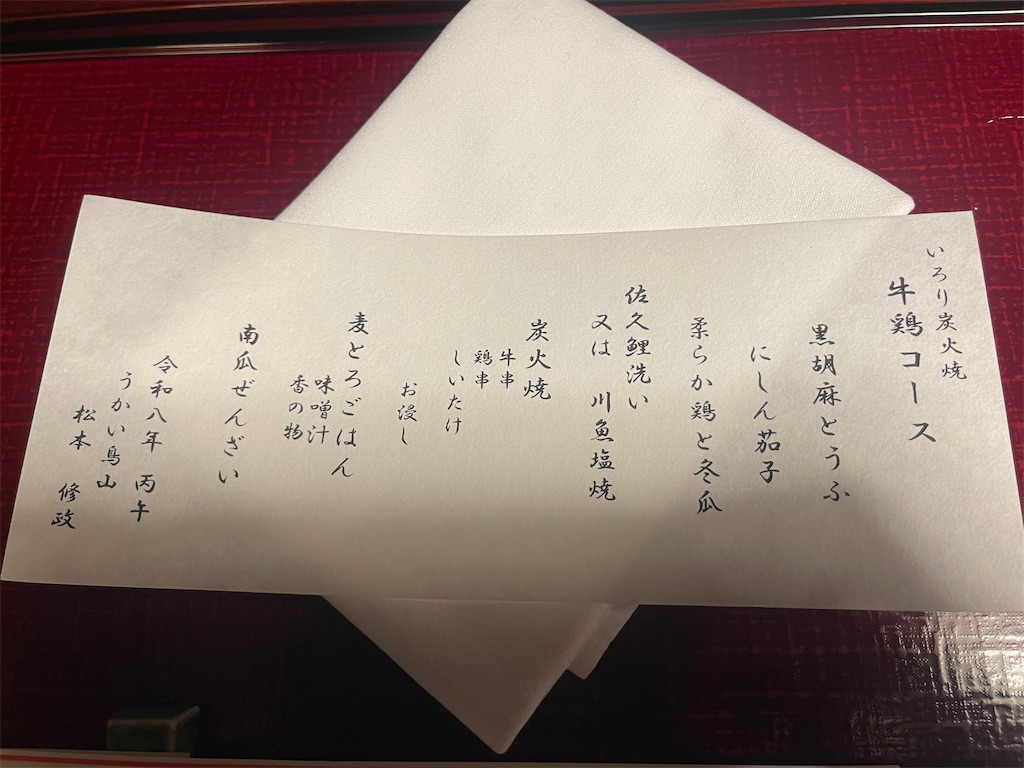 いろり炭火焼
牛鶏コース
黒胡麻とうふ
にしん茄子
柔らか鶏と冬瓜
佐久鯉洗い
又は 川魚塩焼
炭火焼
牛串
鶏串
しいたけ
お浸し
麦とろごはん
味噌汁
香の物
南瓜ぜんざい
令和八年 丙午
うかい鳥山
松本 修政